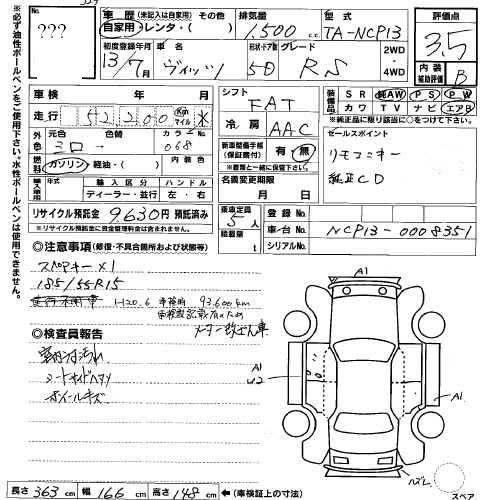 ???
車歴 (未記入は自家用) その他
自家用・レンタ・( )
排気量
1,500 c.c.
型式
TA-NCP13
評価点
3.5
内装補助評価
B
初度登録年月
13/7月
車名
ヴィッツ
形状・ドア数
5D
グレード
RS
2WD・4WD
※必ず油性ボールペンをご使用下さい。水性ボールペンは使用できません。
車検 年 月
走行 52,200 Km マイル
シフト
FAT
冷房
AAC
装備品
SR 純AW PS PW
カワ TV ナビ エアB
※純正品に限り該当に○をつけて下さい。
外色
元色 色替 カラーNo
068
燃料
ガソリン・軽油・( )
内装色
新車整備手帳(保証書付) 有・無
※書類と一緒に保管して下さい。
セールスポイント
リモコンキー
純正CD
輸入車
年式 輸入区分 ハンドル
ディーラー・並行 左・右
名義変更期限
月 日
リサイクル預託金 9,630円 預託済み
※リサイクル預託金に資金管理料金は含まれません。
乗車定員 5人
積載量 t
登録No.
車台No. NCP13-0008351
シリアルNo.
◎注意事項 (修復・不具合箇所および状態等)
スペアキー×1
185/55R15
走行不明車 H20.6 車検時 93,600km
車検証記載有のため
メーター改ざん車
◎検査員報告
室内汚れ
シートサイドヘタリ
ホイールキズ
A1
A1
U2
A1
A1
スペア
長さ 363 cm 幅 166 cm 高さ 148 cm ←(車検証上の寸法)